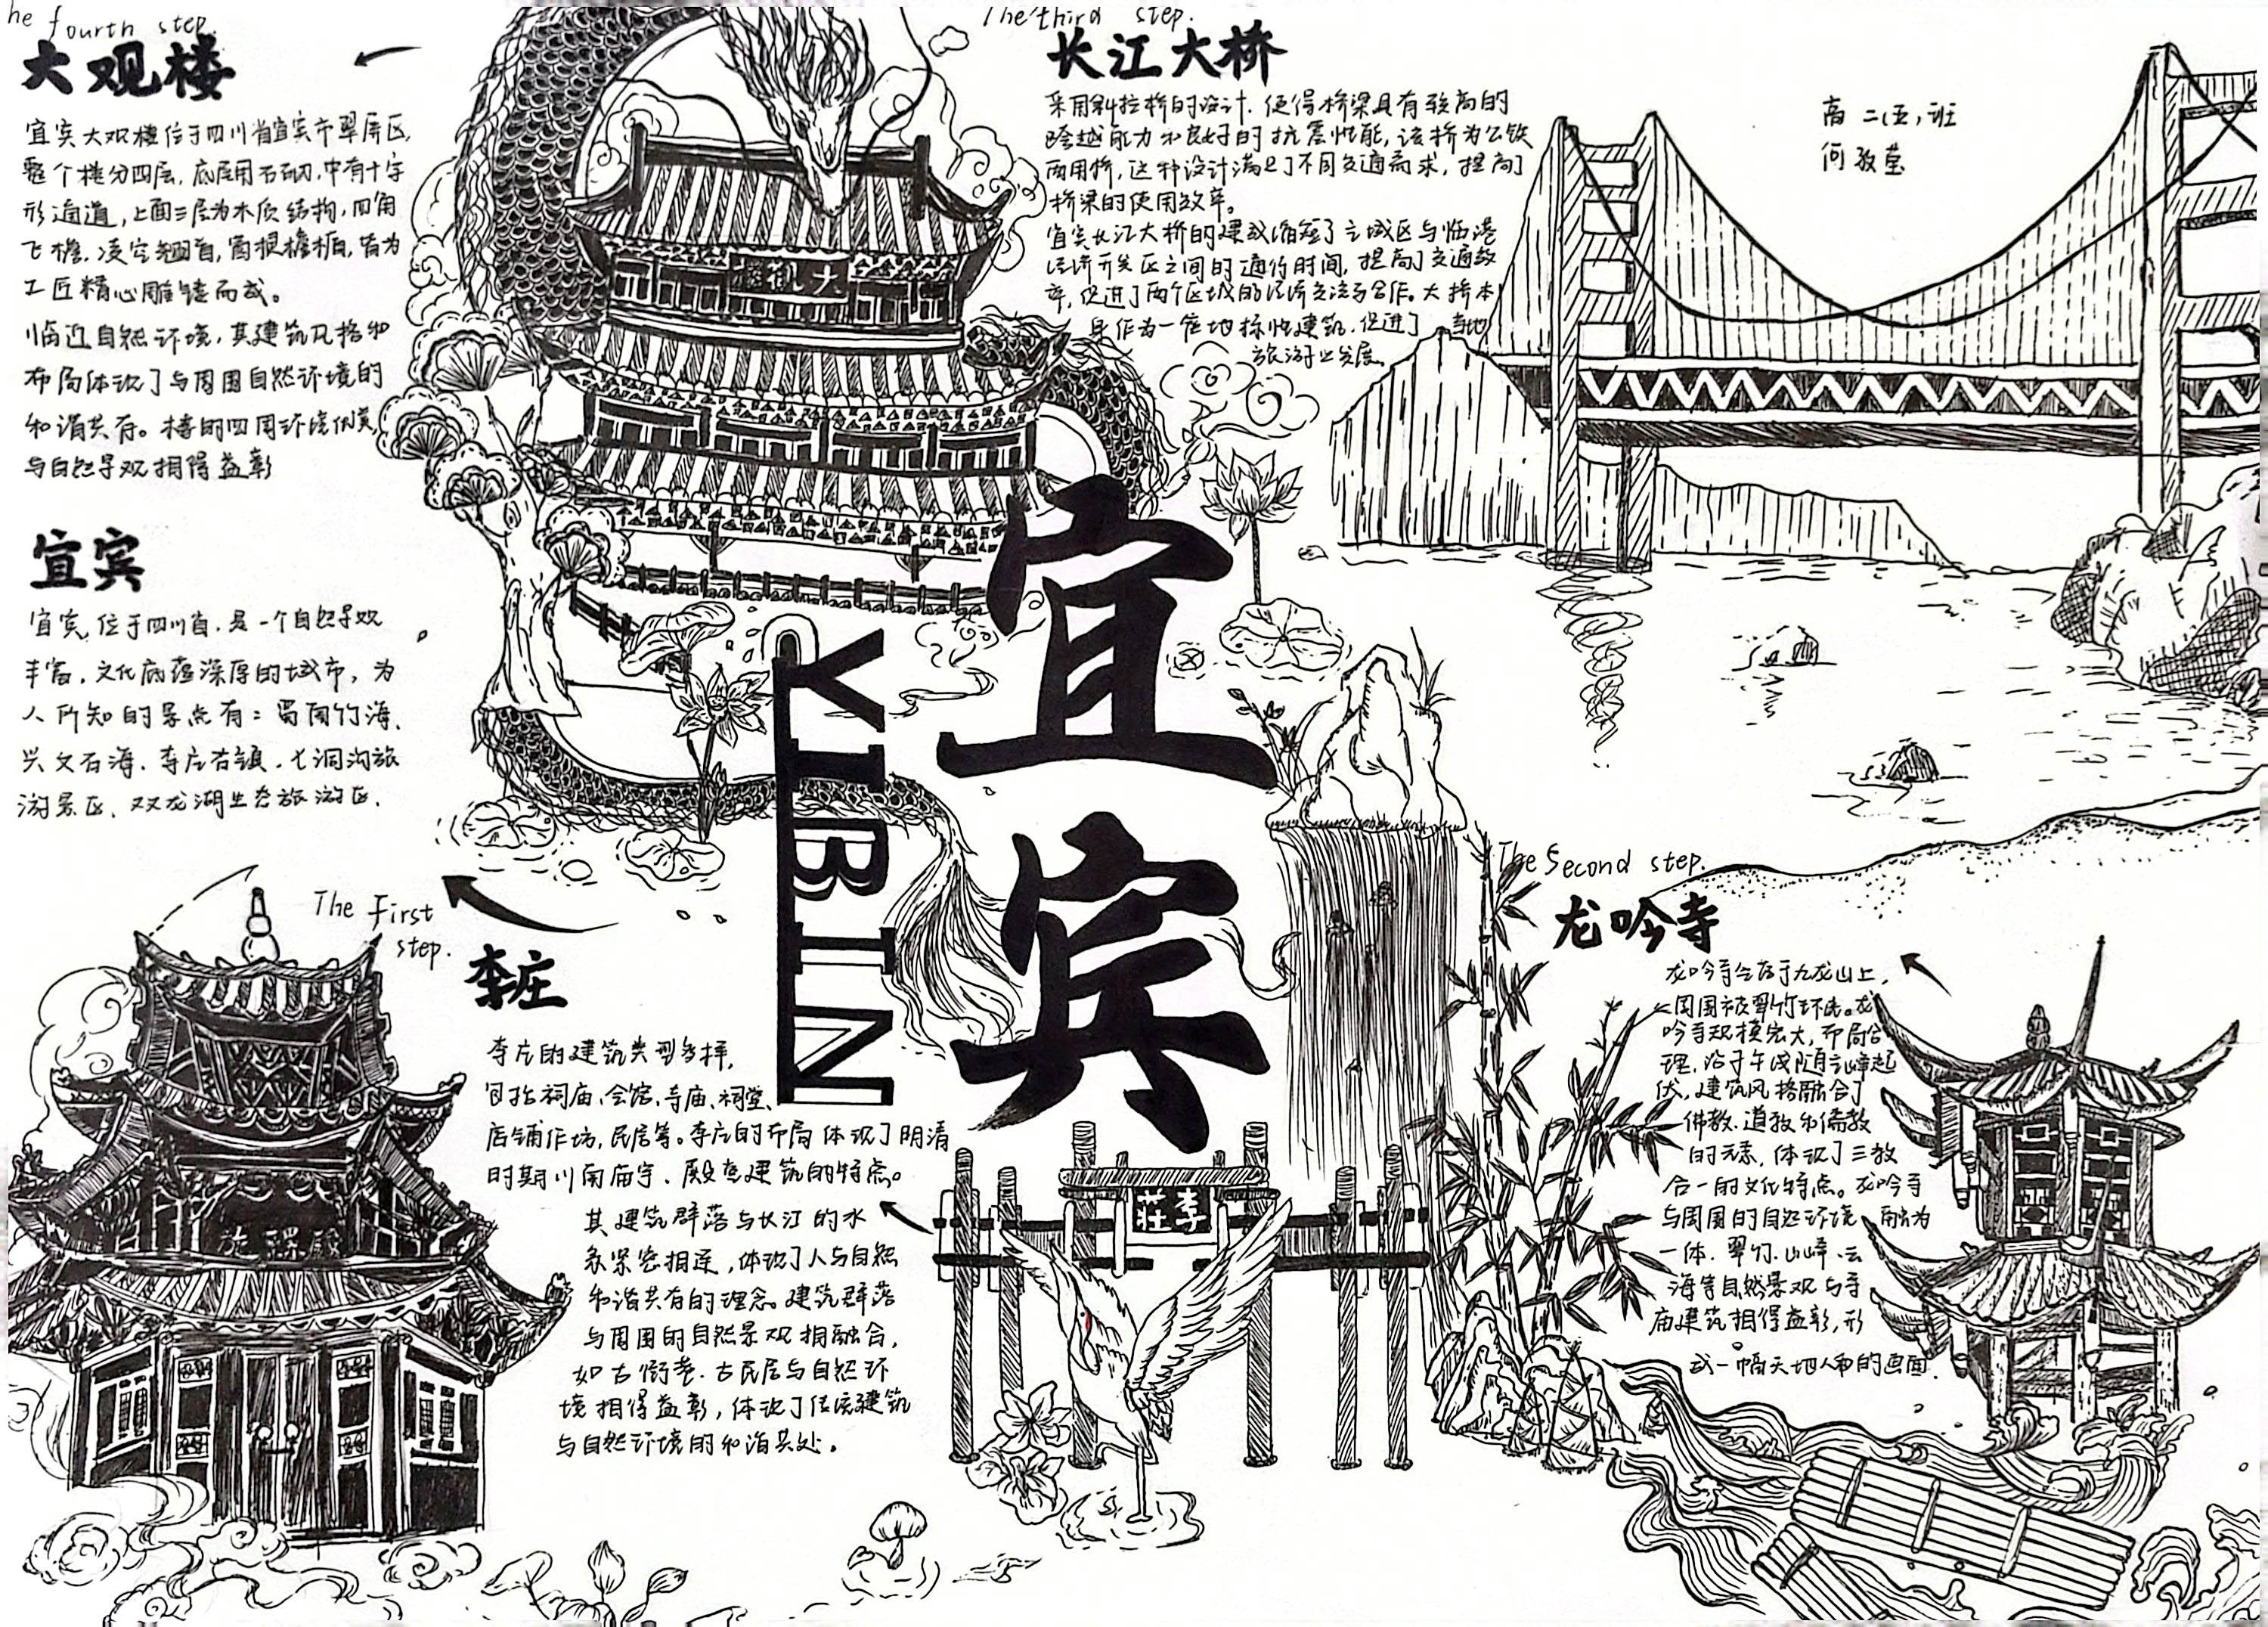 he fourth step.
大观楼
宜宾大观楼位于四川省宜宾市翠屏区,
整个楼分四层,底层用石砌,中有十字
形通道,上面三层为木质结构,四角
飞檐,凌空翘首,
工匠精心雕镂而成。
临近自然环境,其建筑风格和
布局体现了与周围自然环境的
和谐共存。楼的四周环境优美,
与自然景观相得益彰
宜宾
宜宾,位于四川省,是一个自然景观
丰富,文化底蕴深厚的城市,为
人所知的景点有:蜀南竹海、
兴文石海、李庄古镇、七洞沟旅
游景区、双龙湖生态旅游区.
The third step.
长江大桥
采用斜拉桥的设计,使得桥梁具有较高的
跨越能力和良好的抗震性能,该桥为公铁
两用桥,这种设计满足了不同交通需求,提高了
桥梁的使用效率。
宜宾长江大桥的建成缩短了主城区与临港
经济开发区之间的通行时间,提高了交通效
率,促进了两个区域的经济交流与合作。大桥本
身作为一座地标性建筑,促进了当地
旅游业发展。
高二(五)班
何敬莹
大觀樓
宜宾
YIBIN
The First
step.
李庄
李庄的建筑类型多样,
包括祠庙、会馆、寺庙、祠堂、
店铺作坊,民居等。李庄的布局体现了明清
时期川南庙宇、殿堂建筑的特点。
其建筑群落与长江的水
系紧密相连,体现了人与自然
和谐共有的理念。建筑群落
与周围的自然景观相融合,
如古街巷、古民居与自然环
境相得益彰,体现了传统建筑
与自然环境的和谐共处。
旋螺殿
李莊
The Second step.
龙吟寺
龙吟寺坐落于九龙山上,
周围被翠竹环绕。龙
吟寺规模宏大,布局合
理,沿子午线随山峰起
伏,建筑风格融合了
佛教、道教和儒教
的元素,体现了三教
合一的文化特点。龙吟寺
与周围的自然环境融为
一体,翠竹、山峰、云
海等自然景观与寺
庙建筑相得益彰,形
成一幅天地人和的画面.